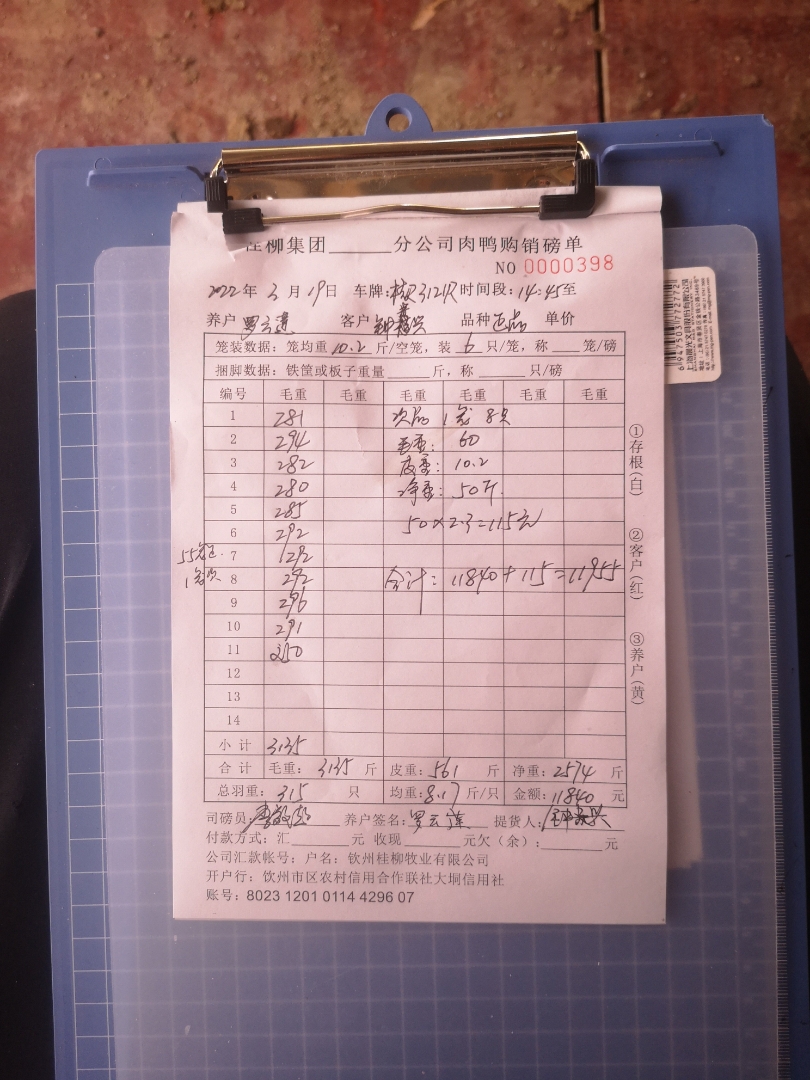 桂柳集团______分公司肉鸭购销磅单
NO 0000398
2022年 3月 19日 车牌: 312 时间段: 14:45至
养户 罗云 客户 钟 品种 正品 单价
笼装数据: 笼均重 10.2 斤/空笼, 装 6 只/笼, 称____笼/磅
捆脚数据: 铁筐或板子重量______斤, 称______只/磅
编号 毛重 毛重 毛重 毛重 毛重 毛重
1 281 次品 1笼 8只
2 294 毛重: 60
3 282 皮重: 10.2
4 280 净重: 50斤.
5 285 50×2.3=115元
6 292
55笼正. 7 292
1笼次 8 292 合计: 11840+115=11955
9 296
10 291
11 250
12
13
14
小计 3135
合计 毛重: 3135 斤 皮重: 561 斤 净重: 2574 斤
总羽重: 315 只 均重: 8.17 斤/只 金额: 11840 元
司磅员: 养户签名: 罗云 提货人: 钟
付款方式: 汇______元 收现______元欠(余): ______元
公司汇款帐号: 户名: 钦州桂柳牧业有限公司
开户行: 钦州市区农村信用合作联社大垌信用社
账号: 8023 1201 0114 4296 07
①存根(白)
②客户(红)
③养户(黄)
6 947503 772772